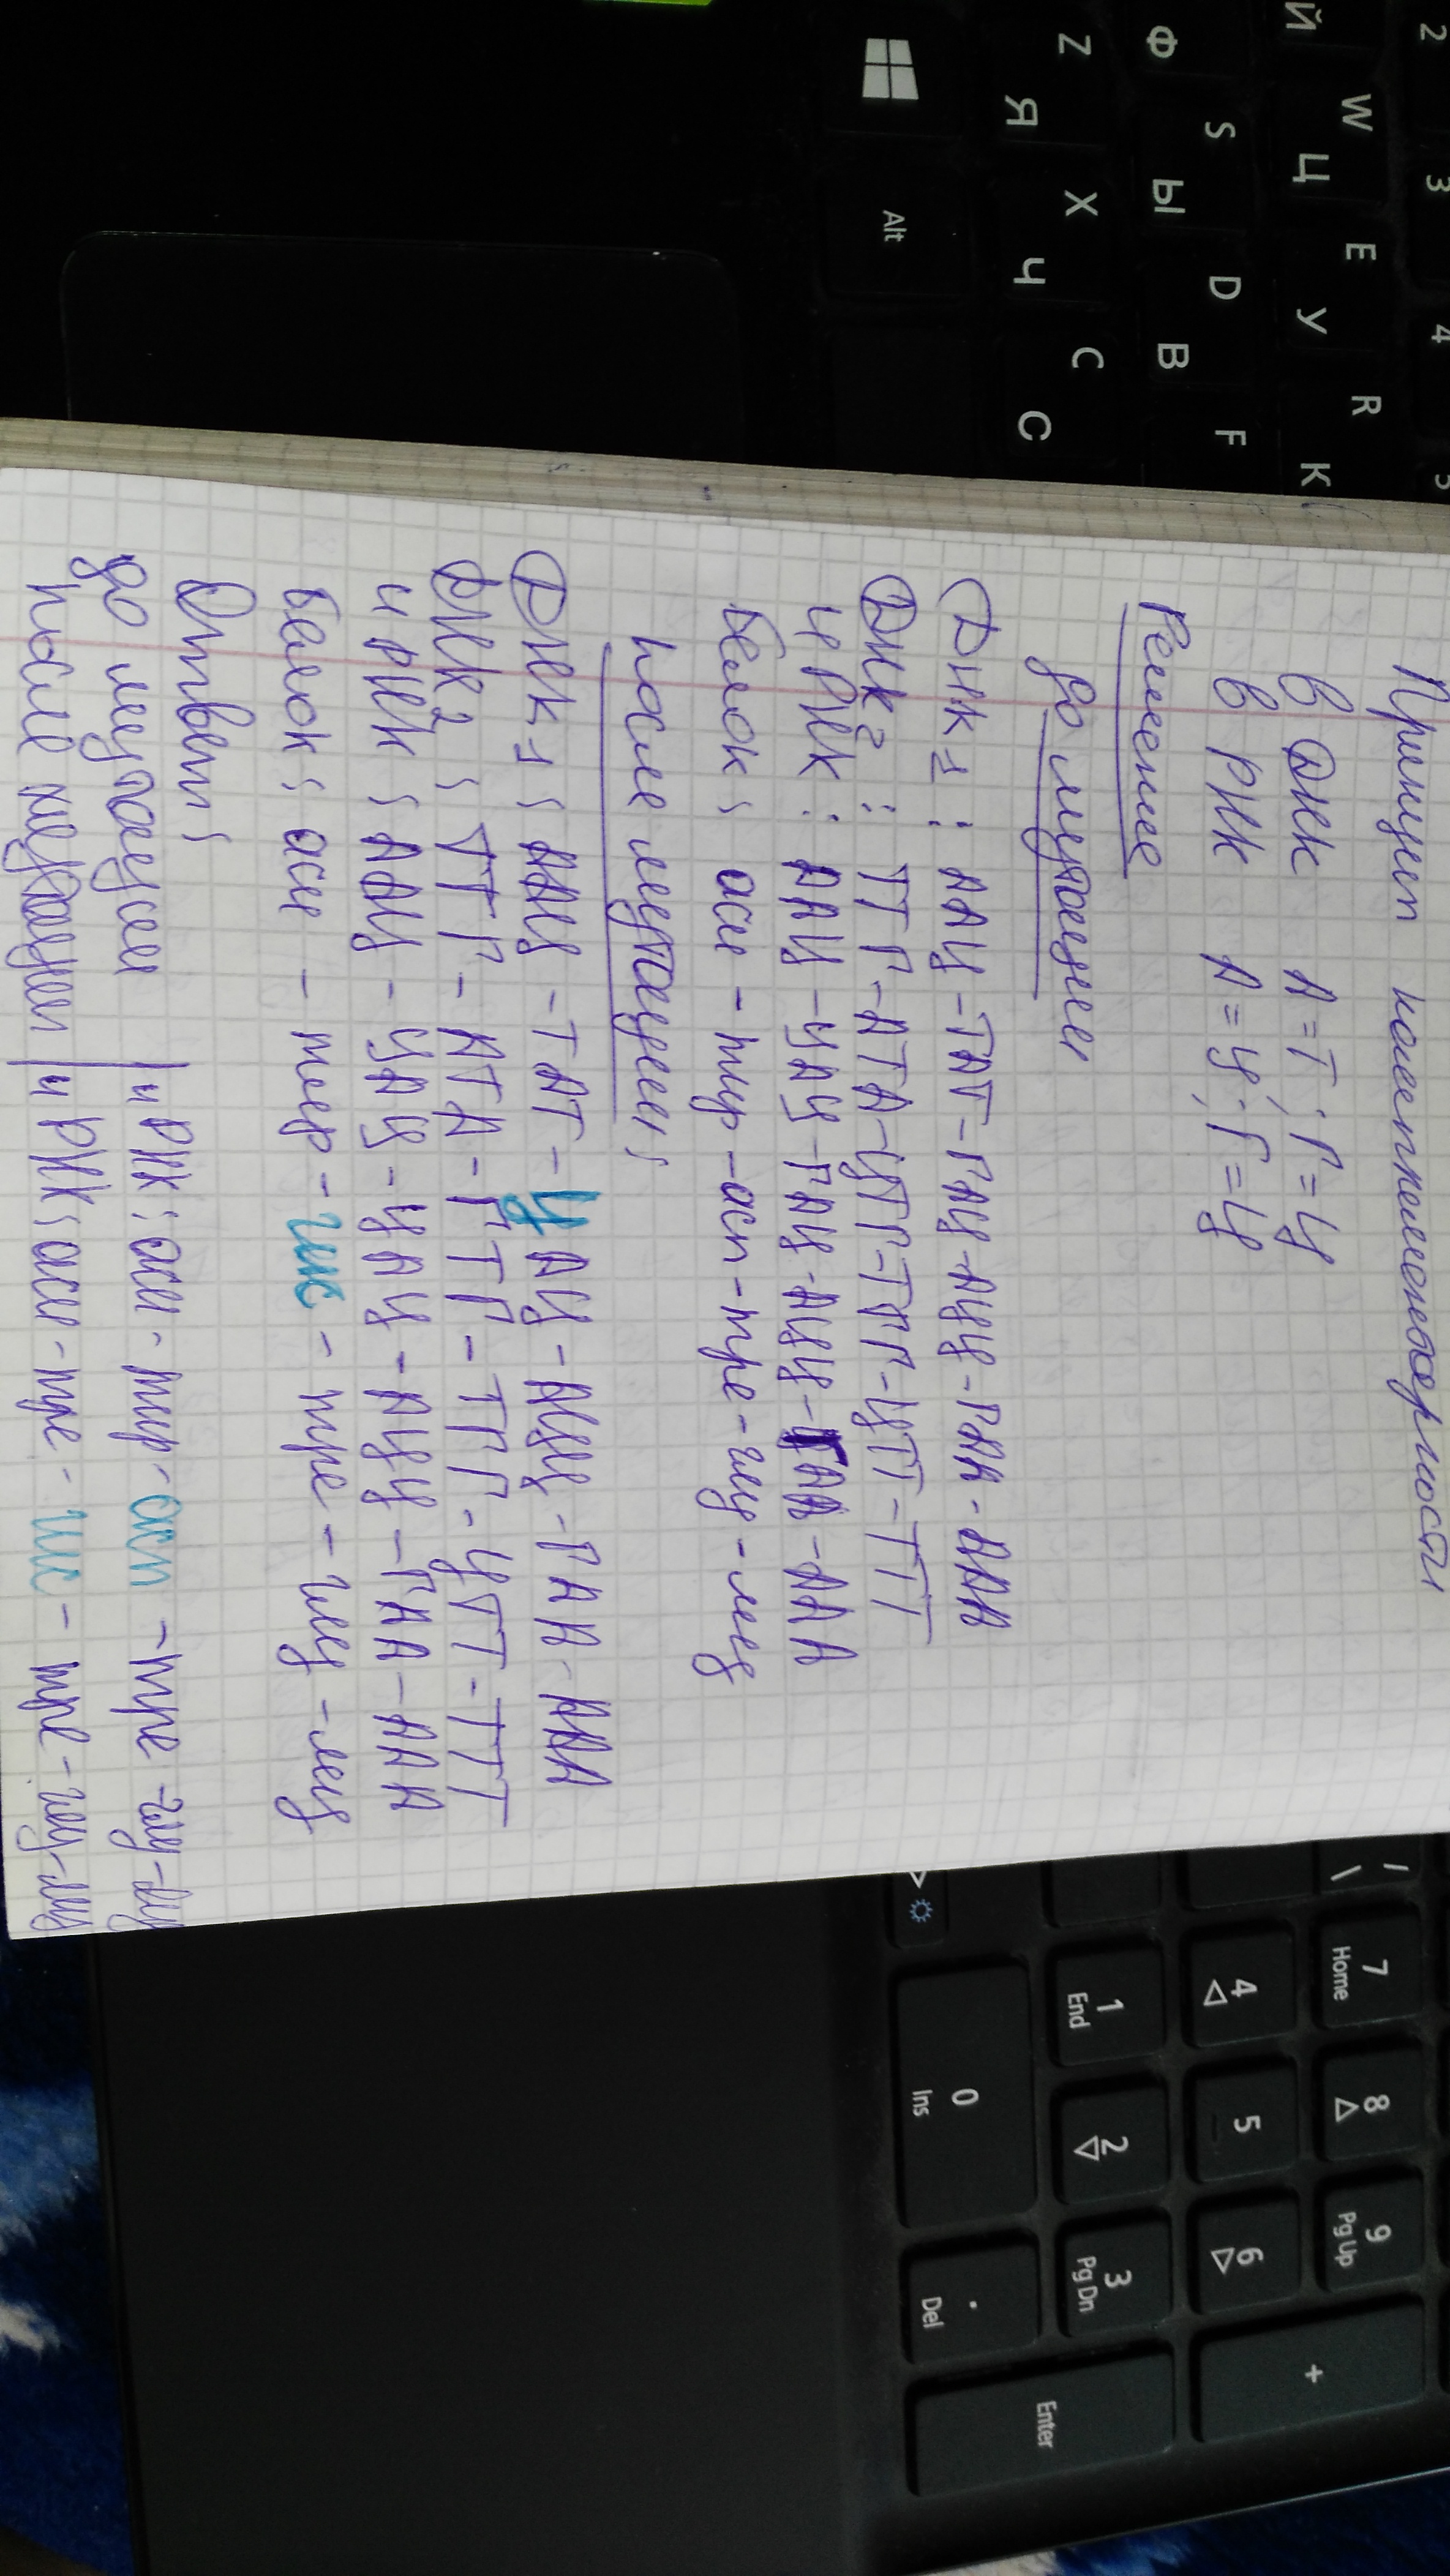 Принцип комплементарности
В ДНК А=Т; Г=Ц
В РНК А=У; Г=Ц
Решение
До мутации
ДНК1: ААЦ-ТАТ-ГАЦ-АЦЦ-ГАА-ААА
ДНК2: ТТГ-АТА-ЦТГ-ТГГ-ЦТТ-ТТТ
иРНК: ААЦ-УАУ-ГАЦ-АЦЦ-ГАА-ААА
Белок: асн-тир-асп-тре-глу-лиз
После мутации:
ДНК1: ААЦ-ТАТ-ЦАЦ-АЦЦ-ГАА-ААА
ДНК2: ТТГ-АТА-ГТГ-ТГГ-ЦТТ-ТТТ
иРНК: ААЦ-УАУ-ЦАЦ-АЦЦ-ГАА-ААА
Белок: асн-тир-гис-тре-глу-лиз
Ответ:
до мутации иРНК: асн-тир-асп-тре-глу-лиз
после мутации иРНК: асн-тре-гис-тре-глу-лиз
2 3 4 5
Й W Ц E У R К
Ф S Ы D В F
Z Я X Ч C С
Alt
/ \
7 Home 8 9 Pg Up
4 5 6 +
1 End 2 3 Pg Dn
0 Ins . Del Enter